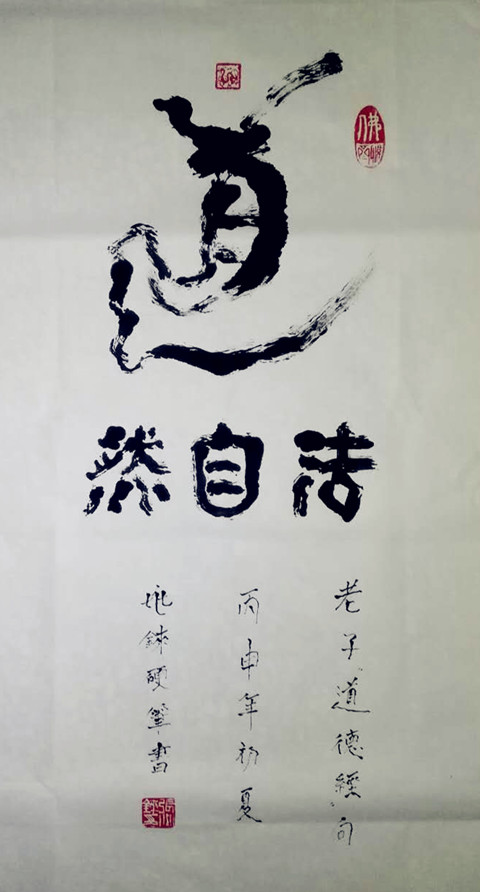 道
佛
法自然
老子道德經句
丙申年初夏
硬筆書